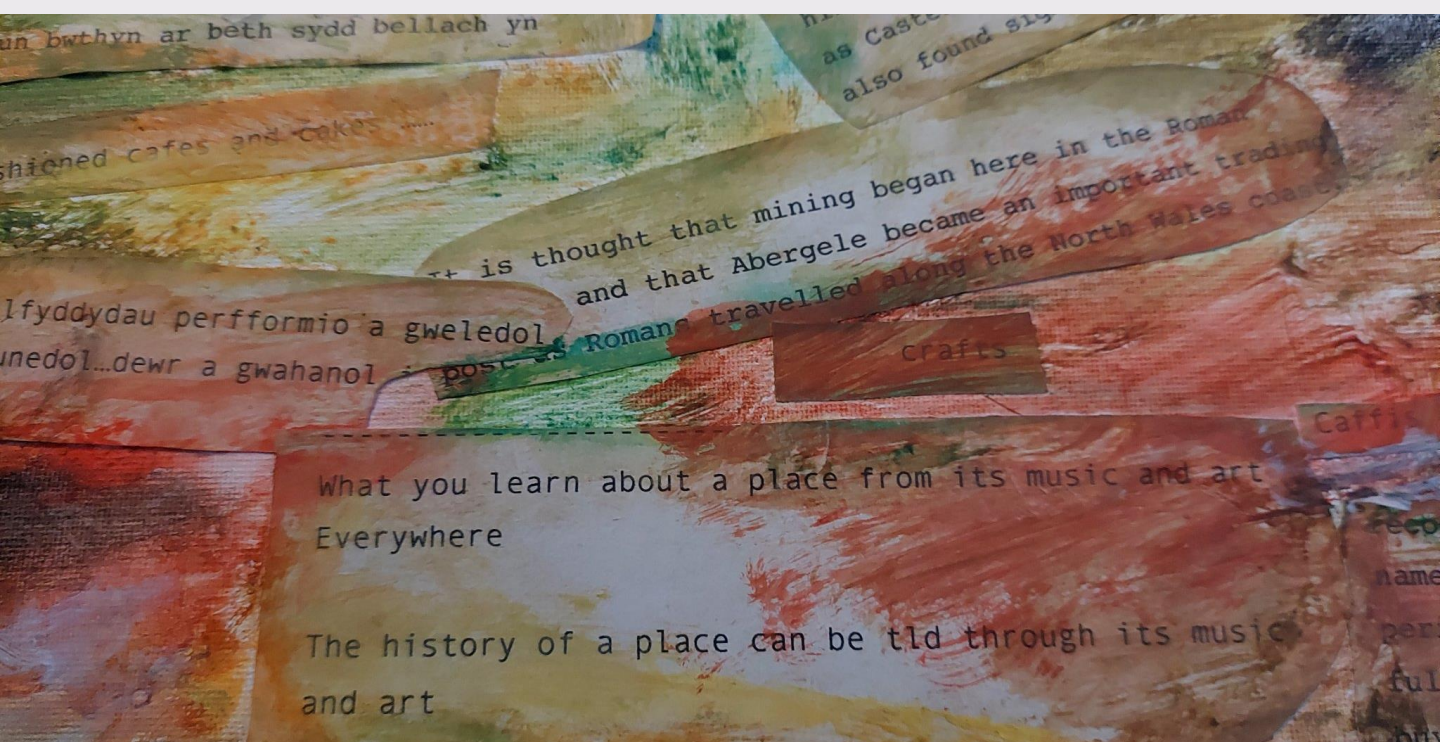 un bwthyn ar beth sydd bellach yn
as Caste
also found sig
shioned cafes and cakes ......
It is thought that mining began here in the Roman
and that Abergele became an important trading
post as Romans travelled along the North Wales coast.
lfyddydau perfformio a gweledol
unedol...dewr a gwahanol i
crafts
Caffis
What you learn about a place from its music and art
Everywhere
The history of a place can be tld through its music
and art
reco
name
pers
ful